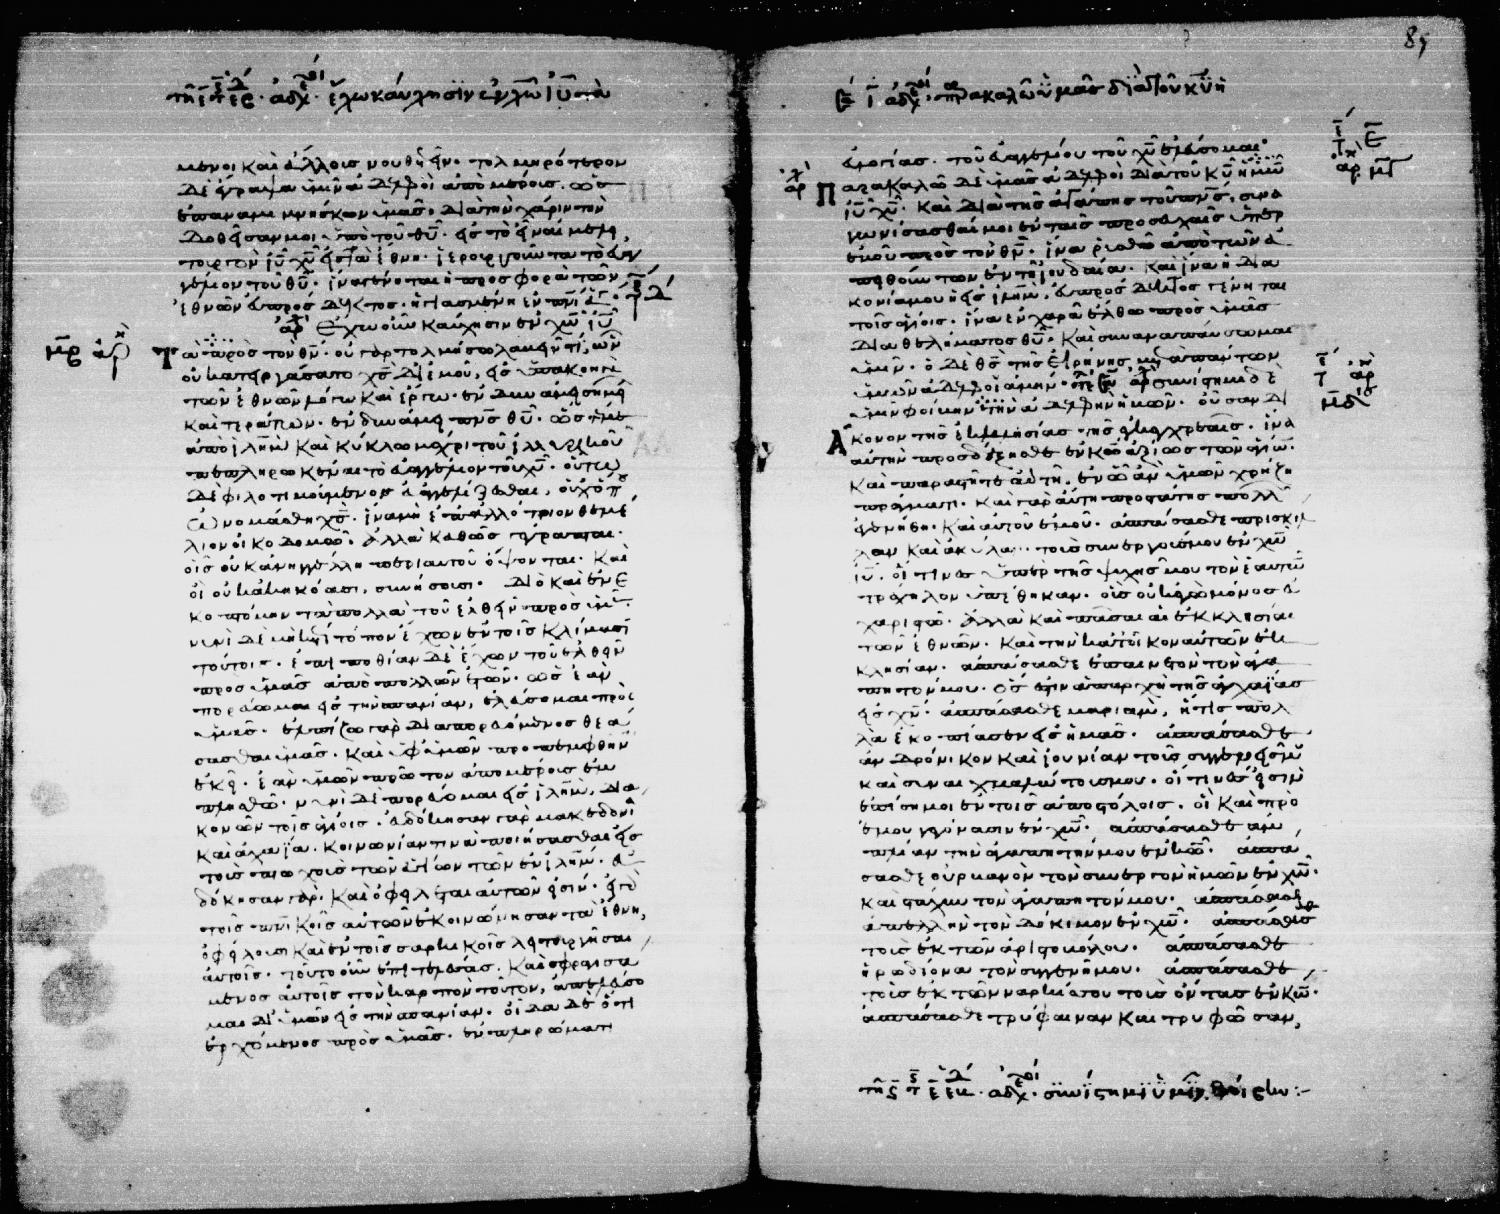 τῆ ε τ ἑβδ. ἀδελφοί. ἔχω καύχησιν ἐν χῶ ιῦ τὰ
μενοι καὶ ἀλλοις νουθετεῖν. τολμηρότερον
δὲ ἔγραψα ὑμῖν ἀδελφοὶ ἀπὸ μέρους. ὡς
ἐπαναμιμνήσκων ὑμᾶς. διὰ τὴν χάριν τὴν
δοθεῖσαν μοι ὑπὸ τοῦ θῦ. εἰς τὸ εἶναί με λει
τουργὸν ιῦ χῦ εἰς τὰ ἔθνη. ἱερουργοῦντα τὸ εὐαγ
γέλιον τοῦ θῦ. ἵνα γένηται ἡ προσφορὰ τῶν
ἐθνῶν εὐπρόσδεκτος. ἡγιασμένη ἐν πνι ἁγ.
ἔχω οὖν καύχησιν ἐν χῶ ιῦ
τὰ πρὸς τὸν θν. οὐ γὰρ τολμήσω λαλεῖν τί, ὧν
οὐ κατειργάσατο χς δι' ἐμοῦ, εἰς ὑπακοὴν
τῶν ἐθνῶν λόγω καὶ ἔργω. ἐν δυνάμει σημεί
καὶ τεράτων. ἐν δυνάμει πνς θῦ. ὥστε με
ἀπὸ ιλημ καὶ κύκλω μέχρι τοῦ ἰλλυρικοῦ
πεπληρωκέναι τὸ εὐαγγέλιον τοῦ χῦ. οὕτω
δὲ φιλοτιμούμενος εὐαγγελίζεσθαι, οὐχ ὅπ
ὠνομάσθη χς. ἵνα μὴ ἐπ' ἀλλότριον θεμέ
λιον οἰκοδομῶ. ἀλλὰ καθὼς γέγραπται.
οἷς οὐκ ἀνηγγέλη περὶ αὐτοῦ ὄψονται. καὶ
οἱ οὐκ ἀκηκόασι, συνήσουσι. διὸ καὶ ἐνε
κοπτόμην τὰ πολλὰ τοῦ ἐλθεῖν πρὸς ὑμᾶς.
νυνὶ δὲ μηκέτι τόπον ἔχων ἐν τοῖς κλίμασι
τούτοις. ἐπιποθίαν δὲ ἔχων τοῦ ἐλθεῖν
προς ὑμᾶς ἀπὸ πολλῶν ἐτῶν. ὡς ἐὰν
πορεύωμαι εἰς τὴν σπανίαν, ἐλεύσομαι πρὸς
ὑμᾶς. ἐλπίζω γὰρ διαπορευόμενος θεά
σασθαι ὑμᾶς. καὶ ὑφ' ὑμῶν προπεμφθῆν
ἐκεῖ. ἐὰν ὑμῶν πρῶτον ἀπὸ μέρους ἐμ
πλησθῶ. νυνὶ δὲ πορεύομαι εἰς ιλημ, δια
κονῶν τοῖς ἁγίοις. εὐδόκησαν γὰρ μακεδονί
καὶ ἀχαΐα. κοινωνίαν τινὰ ποιήσασθαι εἰς
τοὺς πτωχοὺς τῶν ἁγίων τῶν ἐν ιλημ. εὐ
δόκησαν γὰρ. καὶ ὀφειλέται αὐτῶν εἰσίν. εἰ γὰ
τοῖς πνικοῖς αὐτῶν ἐκοινώνησαν τὰ ἔθνη,
ὀφείλουσι καὶ ἐν τοῖς σαρκικοῖς λειτουργῆσαι
αὐτοῖς. τοῦτο οὖν ἐπιτελέσας. καὶ σφραγισά
μενος αὐτοῖς τὸν καρπὸν τοῦτον, ἀπελεύσο
μαι δι' ὑμῶν εἰς τὴν σπανίαν. οἶδα δὲ ὅτι
ἐρχόμενος πρὸς ὑμᾶς. ἐν πληρώματι
ἀδελφοί. παρακαλῶ ὑμᾶς διὰ τοῦ κῦ ἡ
εὐλογίας. τοῦ εὐαγγελίου τοῦ χῦ ἐλεύσομαι.
Παρακαλῶ δὲ ὑμᾶς ἀδελφοὶ διὰ τοῦ κῦ ἡμῶν
ιῦ χῦ. καὶ διὰ τῆς ἀγάπης τοῦ πνς, συνα
γωνίσασθαί μοι ἐν ταῖς προσευχαῖς ὑπὲρ
ἐμοῦ πρὸς τὸν θν. ἵνα ῥυσθῶ ἀπὸ τῶν ἀ
πειθούντων ἐν τῇ ἰουδαία. καὶ ἵνα ἡ δια
κονία μου ἡ εἰς ιλημ, εὐπρόσδεκτος γένηται
τοῖς ἁγίοις. ἵνα ἐν χαρᾶ ἔλθω πρὸς ὑμᾶς
διὰ θελήματος θῦ. καὶ συναναπαύσωμαι
ὑμῖν. ὁ δὲ θς τῆς εἰρήνης, μετὰ πάντων
ὑμῶν ἀδελφοὶ ἀμήν. συνίστημι δὲ
ὑμῖν φοίβην τὴν ἀδελφὴν ἡμῶν. οὖσαν δι
άκονον τῆς ἐκκλησίας τῆς ἐν κεγχρεαῖς. ἵνα
αὐτὴν προσδέξησθε ἐν κω ἀξίως τῶν ἁγίων.
καὶ παραστῆτε αὐτῆ, ἐν ὧ ἂν ὑμῶν χρήζη
πράγματι. καὶ γὰρ αὕτη προστάτης πολλ
ἐγενήθη. καὶ αὐτοῦ ἐμοῦ. ἀσπάσασθε πρίσκι
λαν καὶ ἀκύλαν τοὺς συνεργούς μου ἐν χῶ
ιῦ. οἵτινες ὑπὲρ τῆς ψυχῆς μου τὸν ἑαυτῶ
τράχηλον ὑπέθηκαν. οἷς οὐκ ἐγὼ μόνος εὐ
χαριστῶ. ἀλλὰ καὶ πᾶσαι αἱ ἐκκλησίαι
τῶν ἐθνῶν. καὶ τὴν κατ' οἶκον αὐτῶν ἐκ
κλησίαν. ἀσπάσασθε ἐπαίνετον τὸν ἀγα
πητόν μου. ὅς ἐστιν ἀπαρχὴ τῆς ἀχαΐας
εἰς χν. ἀσπάσασθε μαριὰμ, ἥτις πολ
λὰ ἐκοπίασεν εἰς ἡμᾶς. ἀσπάσασθε
ἀνδρόνικον καὶ ἰουνίαν τοὺς συγγενεῖς μου
καὶ συναιχμαλώτους μου. οἵτινές εἰσιν
ἐπίσημοι ἐν τοῖς ἀποστόλοις. οἳ καὶ πρὸ
ἐμοῦ γεγόνασιν ἐν χῶ. ἀσπάσασθε ἀμ
πλίαν τὸν ἀγαπητόν μου ἐν κω. ἀσπά
σασθε οὐρβανὸν τὸν συνεργὸν ἡμῶν ἐν χῶ.
καὶ στάχυν τὸν ἀγαπητόν μου. ἀσπάσασθε
ἀπελλῆν τὸν δόκιμον ἐν χῶ. ἀσπάσασθε
τοὺς ἐκ τῶν ἀριστοβούλου. ἀσπάσασθε
ἡρωδίονα τὸν συγγενῆ μου. ἀσπάσασθε
τοὺς ἐκ τῶν ναρκίσσου τοὺς ὄντας ἐν κω.
ἀσπάσασθε τρύφαιναν καὶ τρυφῶσαν,
ἀδελφοί. συνίστημι ὑμῖν φοίβην:-